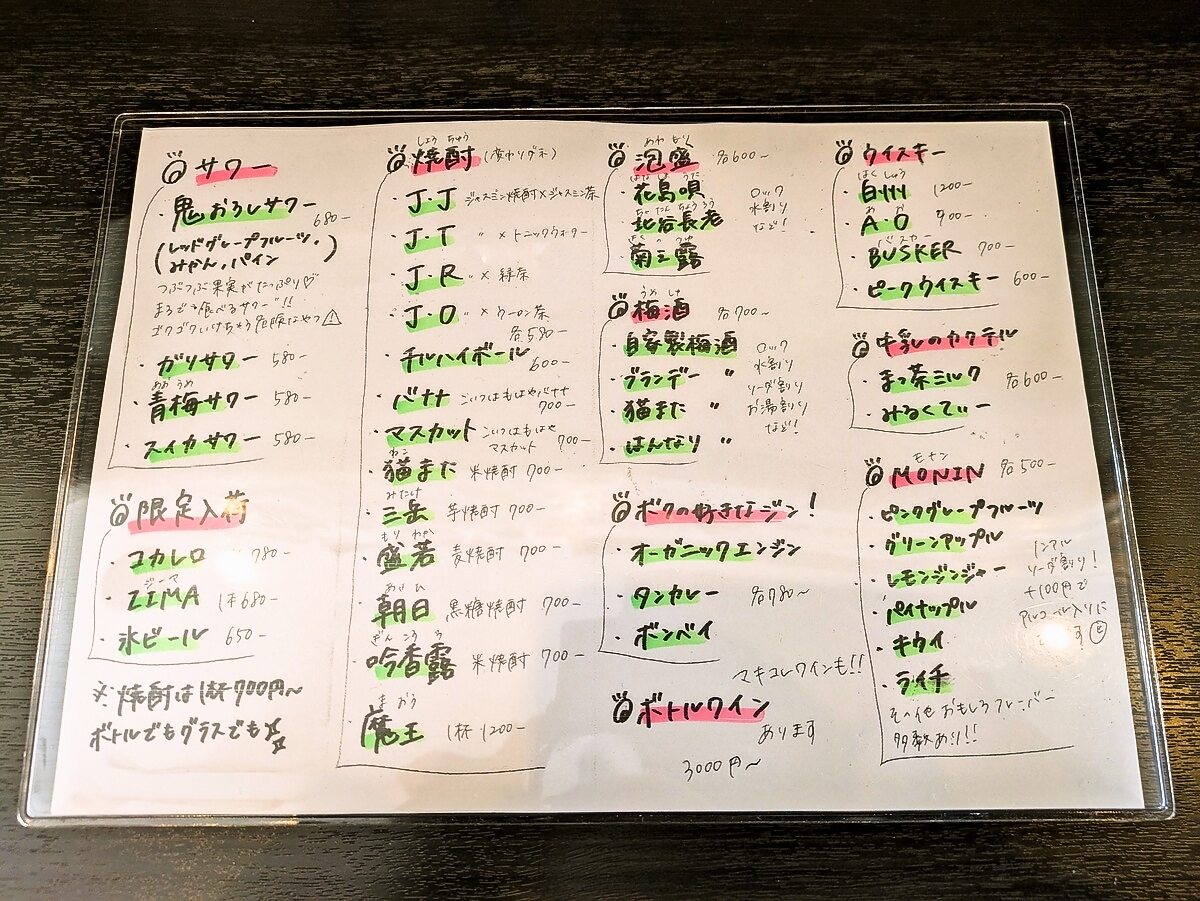 サワー
・鬼おろしサワー 680-
(レッドグレープフルーツ、
みかん、パイン)
つぶつぶ果実がたっぷり♡
まるで食べるサワー!!
ゴクゴクいけちゃう危険なやつ⚠
・ガリサワー 580-
あおうめ
・青梅サワー 580-
・スイカサワー 580-
限定入荷
・コカレロ 780-
ジーマ
・ZIMA 1杯680-
・氷ビール 650-
※焼酎は1杯700円~
ボトルでもグラスでも
しょうちゅう
焼酎(変わりダネ)
・J・J ジャスミン焼酎×ジャスミン茶
・J・T 〃 ×トニックウォーター
・J・R 〃 × 緑茶
・J・O 〃 × ウーロン茶
各580-
・チルハイボール 600-
・バナナ こいつはもはやバナナ
700-
・マスカット こいつはもはや
マスカット 700-
ねこ
・猫また 米焼酎 700-
みたけ
・三岳 芋焼酎 700-
もりわか
・盛若 麦焼酎 700-
あさひ
・朝日 黒糖焼酎 700-
ぎんこうろ
・吟香露 米焼酎 700-
まおう
・魔王 1杯 1200-
あわもり
泡盛 各600-
はなしまうた
・花島唄 ロック
ちゃたんちょうろう
・北谷長老 水割り
きくのつゆ など!
・菊之露
うめしゅ
梅酒 各700-
・自家製梅酒 ロック
水割り
・ブランデー 〃 ソーダ割り
・猫また 〃 お湯割り
など!
・はんなり 〃
ボクの好きなジン!
・オーガニックエンジン
・タンカレー 各780-
・ボンベイ
マキコレワインも!!
ボトルワイン
あります
3000円~
ウイスキー
はくしゅう
・白州 1200-
あお
・A・O 900-
バスカー
・BUSKER 700-
・ピークウイスキー 600-
牛乳のカクテル
・まっ茶ミルク 各600-
・みるくてぃー
モナン
MONIN 各500-
・ピンクグレープフルーツ
・グリーンアップル
・レモンジンジャー
・パイナップル
・キウイ
・ライチ
ノンアル
ソーダ割り!
+100円で
アルコール入りに
その他おもしろフレーバー
多数あり!!